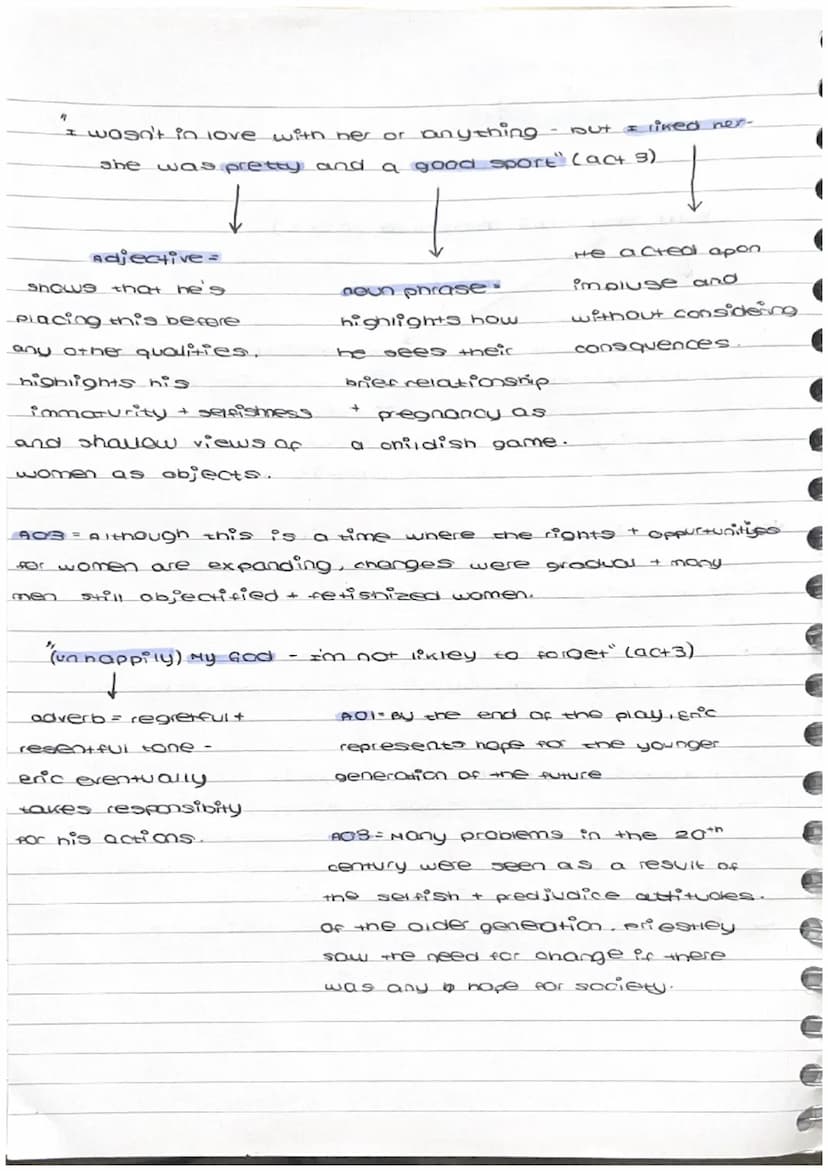 "I wasn't in love with her or anything - but I liked her-
she was pretty and a good sport" (act 3)
Adjective =
shows that he's
placing this before
any other qualities.
highlights his
immaturity + selfishness
and shallow views of
women as objects.
noun phrase =
highlights how
he sees their
brief relationship
+ pregnancy as
a childish game.
He acted apon
impluse and
without considering
consquences.
AO3 = Although this is a time where the rights + oppurtunities
for women are expanding, changes were gradual + many
men still objectified + fetishized women.
"(unhappily) My God - I'm not likley to forget" (act 3)
adverb = regretful +
resentful tone -
eric eventually
takes responsibity
for his actions.
AO1 = By the end of the play, Eric
represents hope for the younger
generation of the future
AO3 = Many problems in the 20th
century were seen as a result of
the selfish + predjudice attitudes.
Of the older generation. Priestley
saw the need for change if there
was any hope for society.